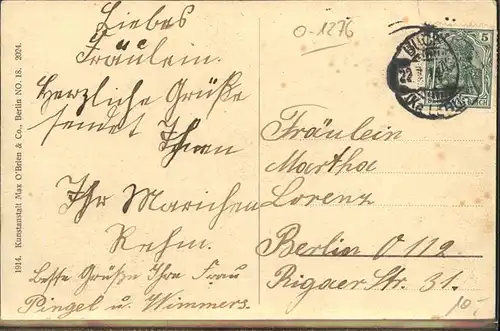 Liebes
Fräulein.
Herzliche Grüße
sendet Ihnen
Ihr Mariechen
Rehm.
Beste Grüße Ihre Frau
Pingel u. Wimmers.
1914. Kunstanstalt Max O'Brien & Co., Berlin NO. 18. 2024.
0-1276
5
22
Fräulein
Martha
Lorenz
Berlin O 112
Rigaer Str. 31.
10.-